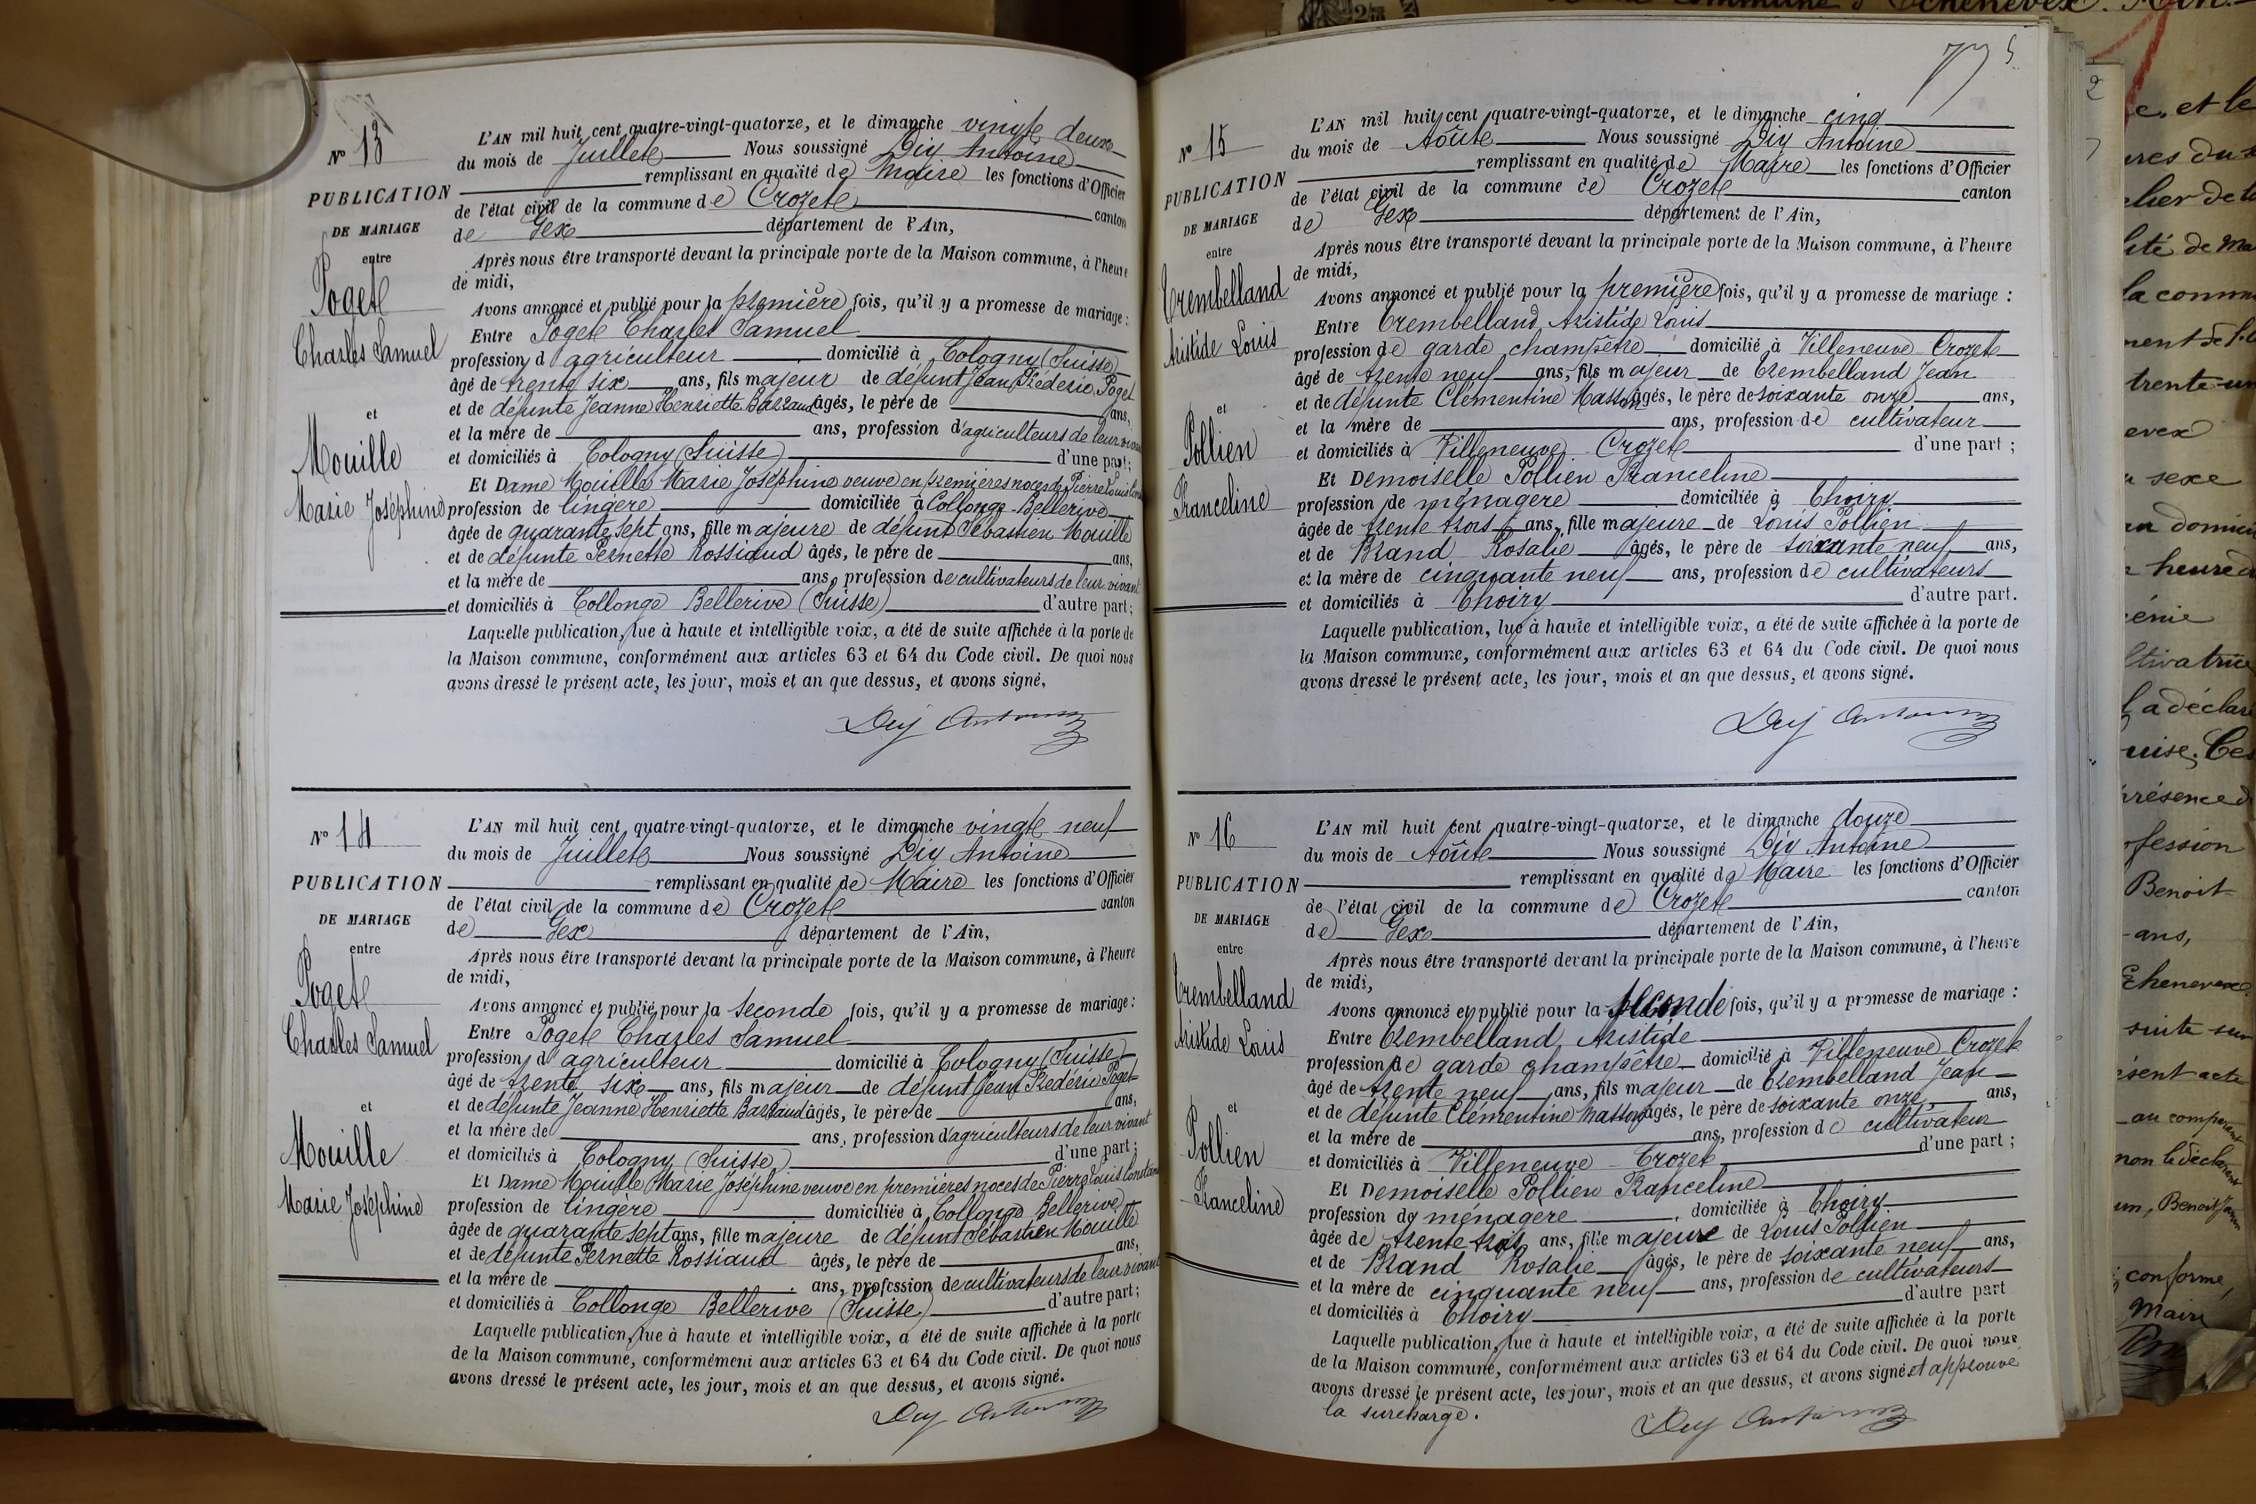 Nº 13
PUBLICATION
DE MARIAGE
entre
Poget
Charles Samuel
et
Mouille
Marie Joséphine
L'AN mil huit cent quatre-vingt-quatorze, et le dimanche vingt deux
du mois de Juillet Nous soussigné Dij Antoine
remplissant en qualité de Maire les fonctions d'Officier
de l'état civil de la commune de Crozet canton
de Gex département de l'Ain,
Après nous être transporté devant la principale porte de la Maison commune, à l'heure
de midi,
Avons annoncé et publié pour la première fois, qu'il y a promesse de mariage :
Entre Poget Charles Samuel
profession d'agriculteur domicilié à Cologny (Suisse)
âgé de trente six ans, fils majeur de défunt Jean Fréderic Poget
et de défunte Jeanne Henriette Barraud âgés, le père de ans,
et la mère de ans, profession d'agriculteurs de leur vivant
et domiciliés à Cologny (Suisse) d'une part ;
Et Dame Mouille Marie Joséphine veuve en premières noces de Pierre Louis
profession de lingère domiciliée à Collonge Bellerive
âgée de quarante sept ans, fille majeure de défunt Sébastien Mouille
et de défunte Pernette Rossiaud âgés, le père de ans,
et la mère de ans, profession de cultivateurs de leur vivant
et domiciliés à Collonge Bellerive (Suisse) d'autre part ;
Laquelle publication, lue à haute et intelligible voix, a été de suite affichée à la porte de
la Maison commune, conformément aux articles 63 et 64 du Code civil. De quoi nous
avons dressé le présent acte, les jour, mois et an que dessus, et avons signé.
Dij Antoine
Nº 14
PUBLICATION
DE MARIAGE
entre
Poget
Charles Samuel
et
Mouille
Marie Joséphine
L'AN mil huit cent quatre-vingt-quatorze, et le dimanche vingt neuf
du mois de Juillet Nous soussigné Dij Antoine
remplissant en qualité de Maire les fonctions d'Officier
de l'état civil de la commune de Crozet canton
de Gex département de l'Ain,
Après nous être transporté devant la principale porte de la Maison commune, à l'heure
de midi,
Avons annoncé et publié pour la seconde fois, qu'il y a promesse de mariage :
Entre Poget Charles Samuel
profession d'agriculteur domicilié à Cologny (Suisse)
âgé de trente six ans, fils majeur de défunt Jean Fréderic Poget
et de défunte Jeanne Henriette Barraud âgés, le père de ans,
et la mère de ans, profession d'agriculteurs de leur vivant
et domiciliés à Cologny (Suisse) d'une part ;
Et Dame Mouille Marie Joséphine veuve en premières noces de Pierre Louis Constant
profession de lingère domiciliée à Collonge Bellerive
âgée de quarante sept ans, fille majeure de défunt Sébastien Mouille
et de défunte Pernette Rossiaud âgés, le père de ans,
et la mère de ans, profession de cultivateurs de leur vivant
et domiciliés à Collonge Bellerive (Suisse) d'autre part ;
Laquelle publication, lue à haute et intelligible voix, a été de suite affichée à la porte
de la Maison commune, conformément aux articles 63 et 64 du Code civil. De quoi nous
avons dressé le présent acte, les jour, mois et an que dessus, et avons signé.
Dij Antoine
Nº 15
PUBLICATION
DE MARIAGE
entre
Trembelland
Aristide Louis
et
Pollien
Franceline
L'AN mil huit cent quatre-vingt-quatorze, et le dimanche cinq
du mois de Août Nous soussigné Dij Antoine
remplissant en qualité de Maire les fonctions d'Officier
de l'état civil de la commune de Crozet canton
de Gex département de l'Ain,
Après nous être transporté devant la principale porte de la Maison commune, à l'heure
de midi,
Avons annoncé et publié pour la première fois, qu'il y a promesse de mariage :
Entre Trembelland Aristide Louis
profession de garde champêtre domicilié à Villeneuve Crozet
âgé de trente neuf ans, fils majeur de Trembelland Jean
et de défunte Clémentine Masson âgés, le père de soixante onze ans,
et la mère de ans, profession de cultivateur
et domiciliés à Villeneuve Crozet d'une part ;
Et Demoiselle Pollien Franceline
profession de ménagère domiciliée à Thoiry
âgée de trente trois ans, fille majeure de Louis Pollien
et de Brand Rosalie âgés, le père de soixante neuf ans,
et la mère de cinquante neuf ans, profession de cultivateurs
et domiciliés à Thoiry d'autre part.
Laquelle publication, lue à haute et intelligible voix, a été de suite affichée à la porte de
la Maison commune, conformément aux articles 63 et 64 du Code civil. De quoi nous
avons dressé le présent acte, les jour, mois et an que dessus, et avons signé.
Dij Antoine
Nº 16
PUBLICATION
DE MARIAGE
entre
Trembelland
Aristide Louis
et
Pollien
Franceline
L'AN mil huit cent quatre-vingt-quatorze, et le dimanche douze
du mois de Août Nous soussigné Dij Antoine
remplissant en qualité de Maire les fonctions d'Officier
de l'état civil de la commune de Crozet canton
de Gex département de l'Ain,
Après nous être transporté devant la principale porte de la Maison commune, à l'heure
de midi,
Avons annoncé et publié pour la seconde fois, qu'il y a promesse de mariage :
Entre Trembelland Aristide
profession de garde champêtre domicilié à Villeneuve Crozet
âgé de trente neuf ans, fils majeur de Trembelland Jean
et de défunte Clémentine Masson âgés, le père de soixante onze ans,
et la mère de ans, profession de cultivateur
et domiciliés à Villeneuve Crozet d'une part ;
Et Demoiselle Pollien Franceline
profession de ménagère domiciliée à Thoiry
âgée de trente trois ans, fille majeure de Louis Pollien
et de Brand Rosalie âgés, le père de soixante neuf ans,
et la mère de cinquante neuf ans, profession de cultivateurs
et domiciliés à Thoiry d'autre part
Laquelle publication, lue à haute et intelligible voix, a été de suite affichée à la porte
de la Maison commune, conformément aux articles 63 et 64 du Code civil. De quoi nous
avons dressé le présent acte, les jour, mois et an que dessus, et avons signé et approuvé
la surcharge.
Dij Antoine
2
et le
trente-un
sexe
heure
Benoit
ans,
Echenevex
suite
conforme,